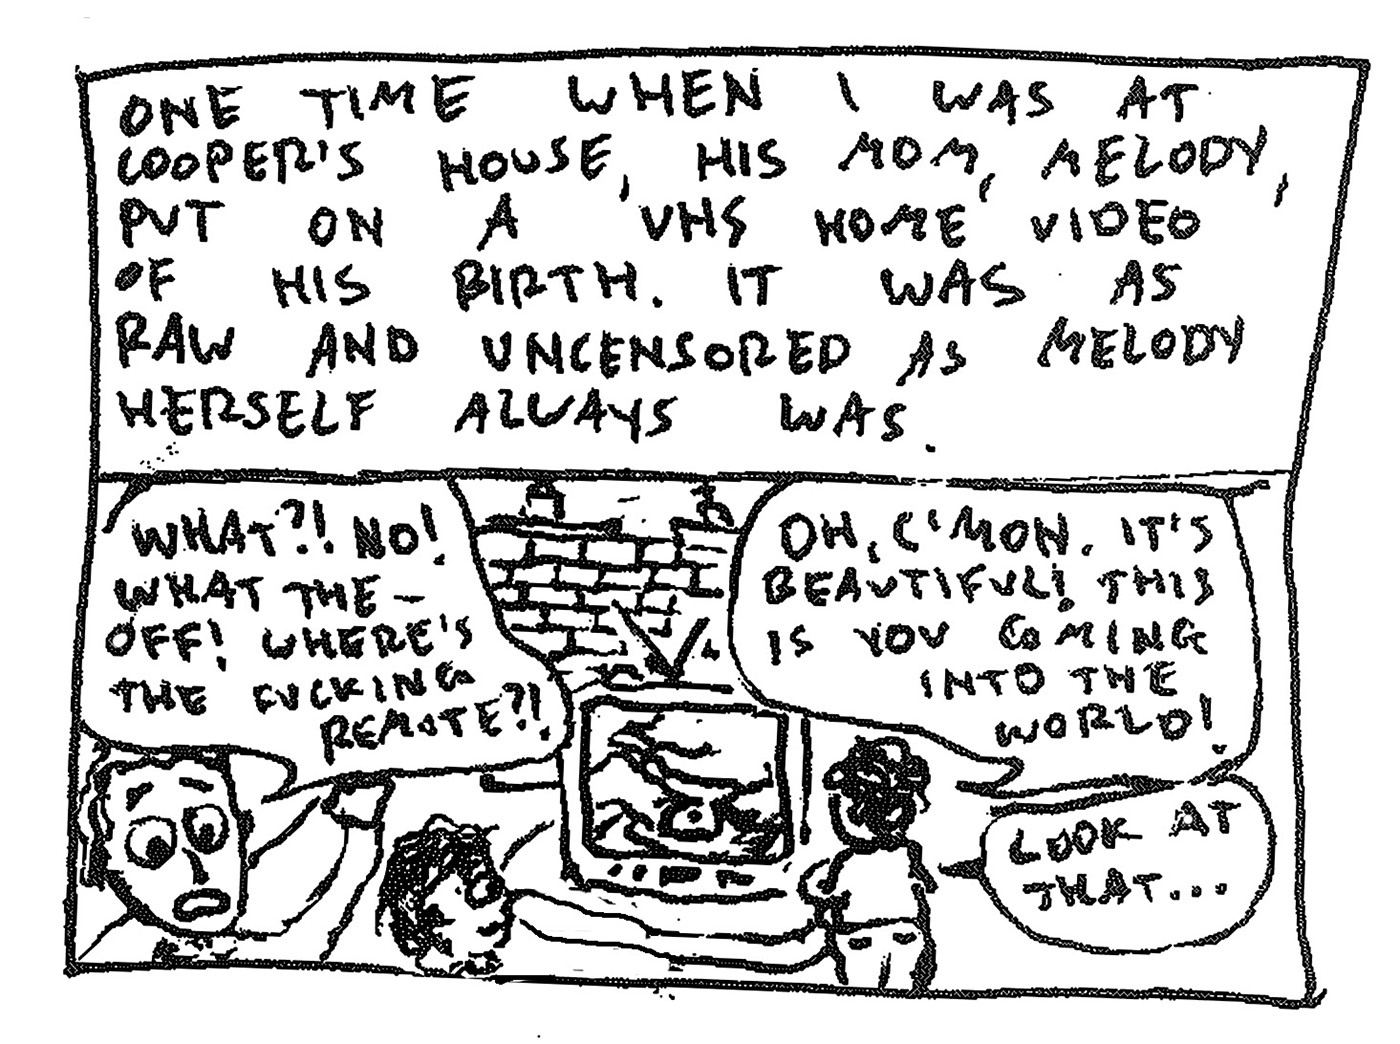 ONE TIME WHEN I WAS AT
COOPER'S HOUSE, HIS MOM, MELODY,
PUT ON A VHS HOME VIDEO
OF HIS BIRTH. IT WAS AS
RAW AND UNCENSORED AS MELODY
HERSELF ALWAYS WAS.
WHAT?! NO!
WHAT THE –
OFF! WHERE'S
THE FUCKING
REMOTE?!
OH, C'MON. IT'S
BEAUTIFUL! THIS
IS YOU COMING
INTO THE
WORLD!
LOOK AT
THAT...